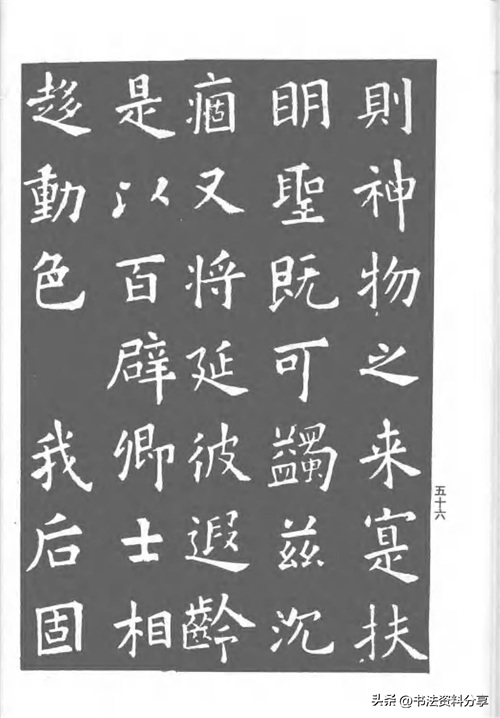 則神物之来寔扶
明聖既可蠲兹沉
痼又将延彼遐齡
是以百辟卿士相
趍動色 我后固
五十六
头条 @书法资料分享